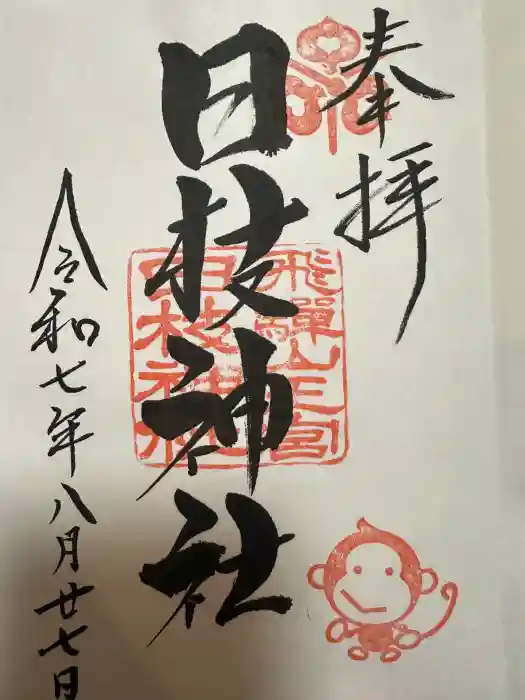 奉拝
日枝神社
飛驒山王宮
日枝神社
令和七年八月廿七日